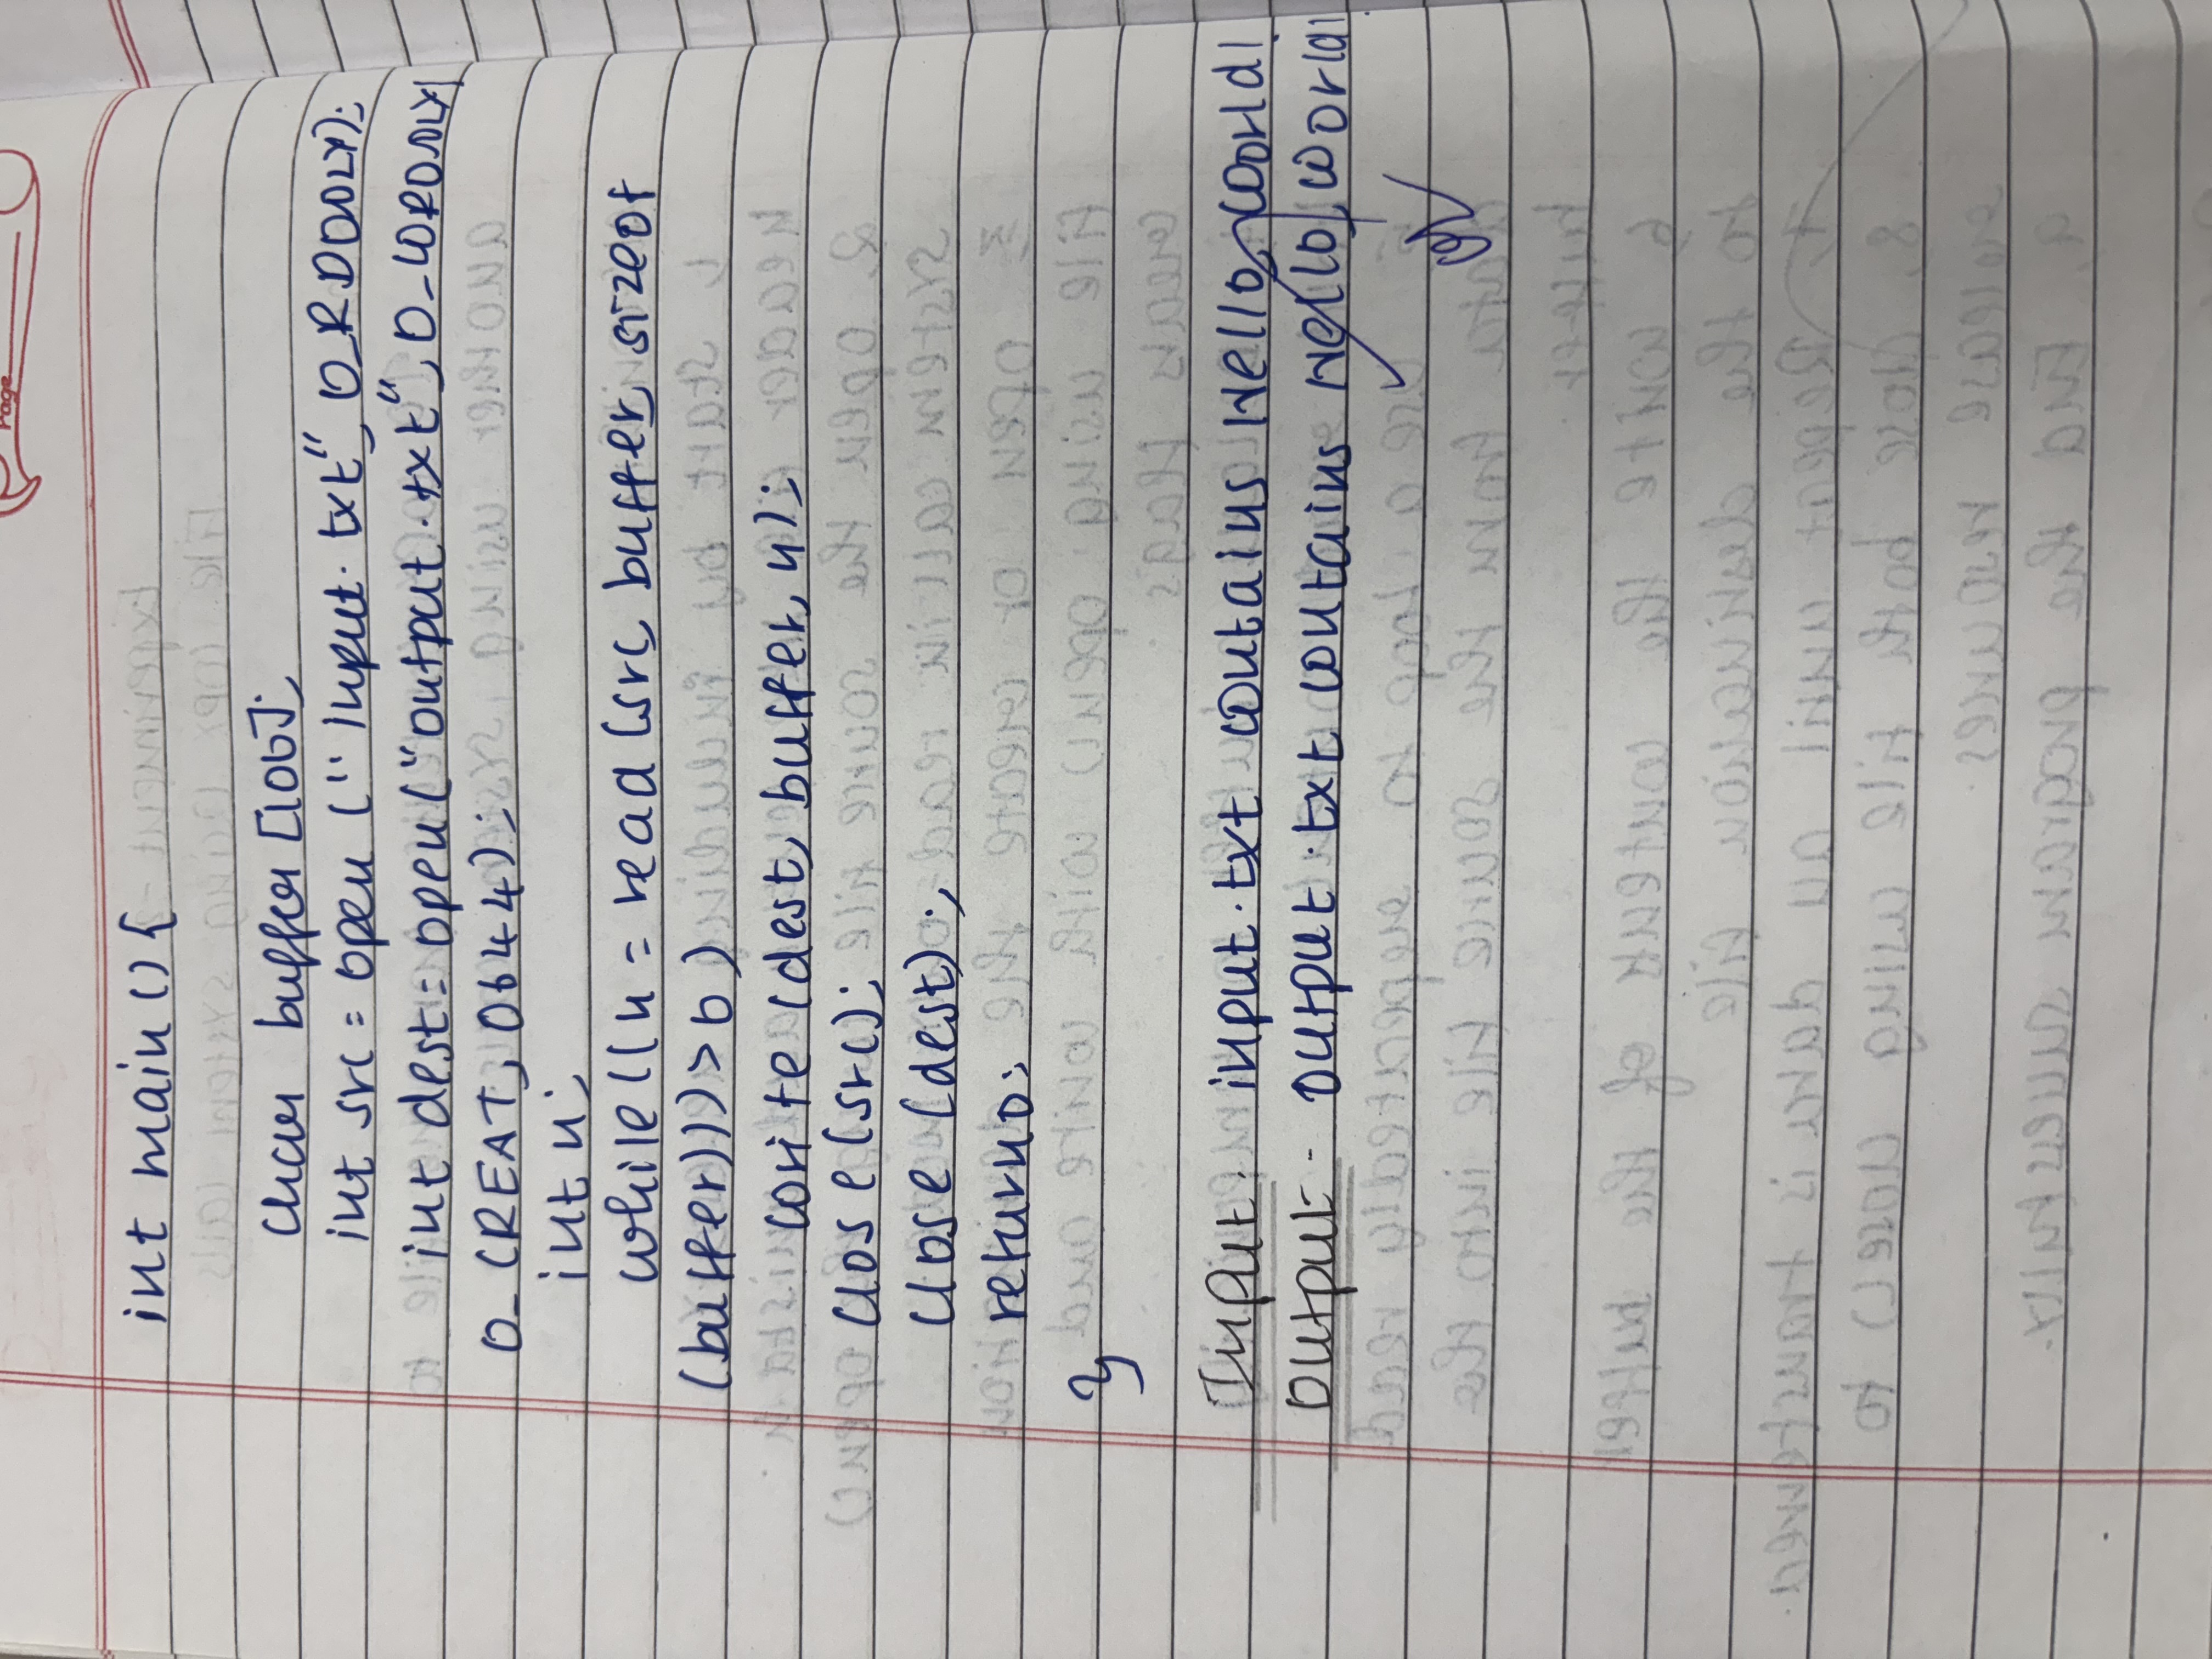 Page
int main () {
char buffer [100];
int src = open ("input.txt", O_RDONLY);
int dest = open ("output.txt", O_WRONLY |
O_CREAT, 0644);
int n;
while ((n = read (src, buffer, sizeof
(buffer))) > 0)
write (dest, buffer, n);
close (src);
close (dest);
return 0;
}
Input. input.txt contains Hello, World!
Output - output.txt contains Hello, World!